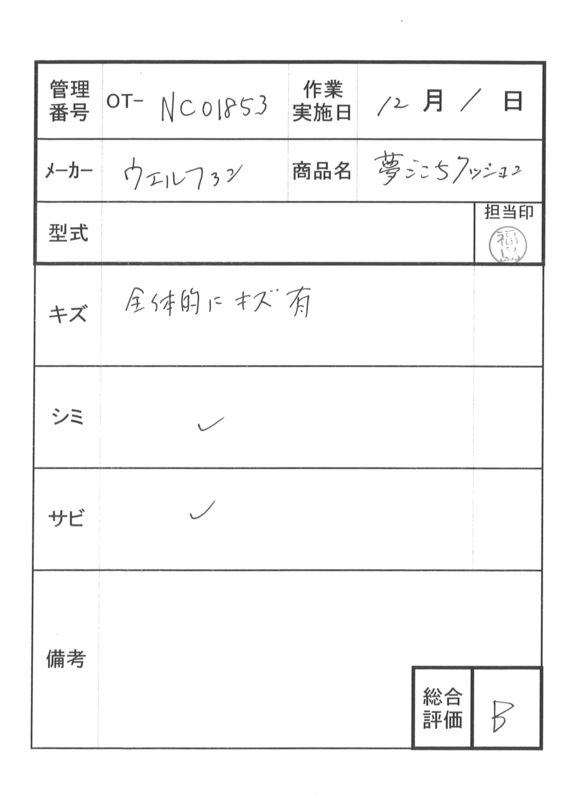 管理番号 OT- NC01853 作業実施日 12月1日
メーカー ウェルファン 商品名 夢ごこちクッション
型式 担当印
キズ 全体的にキズ有
シミ ✓
サビ ✓
備考
総合評価 B